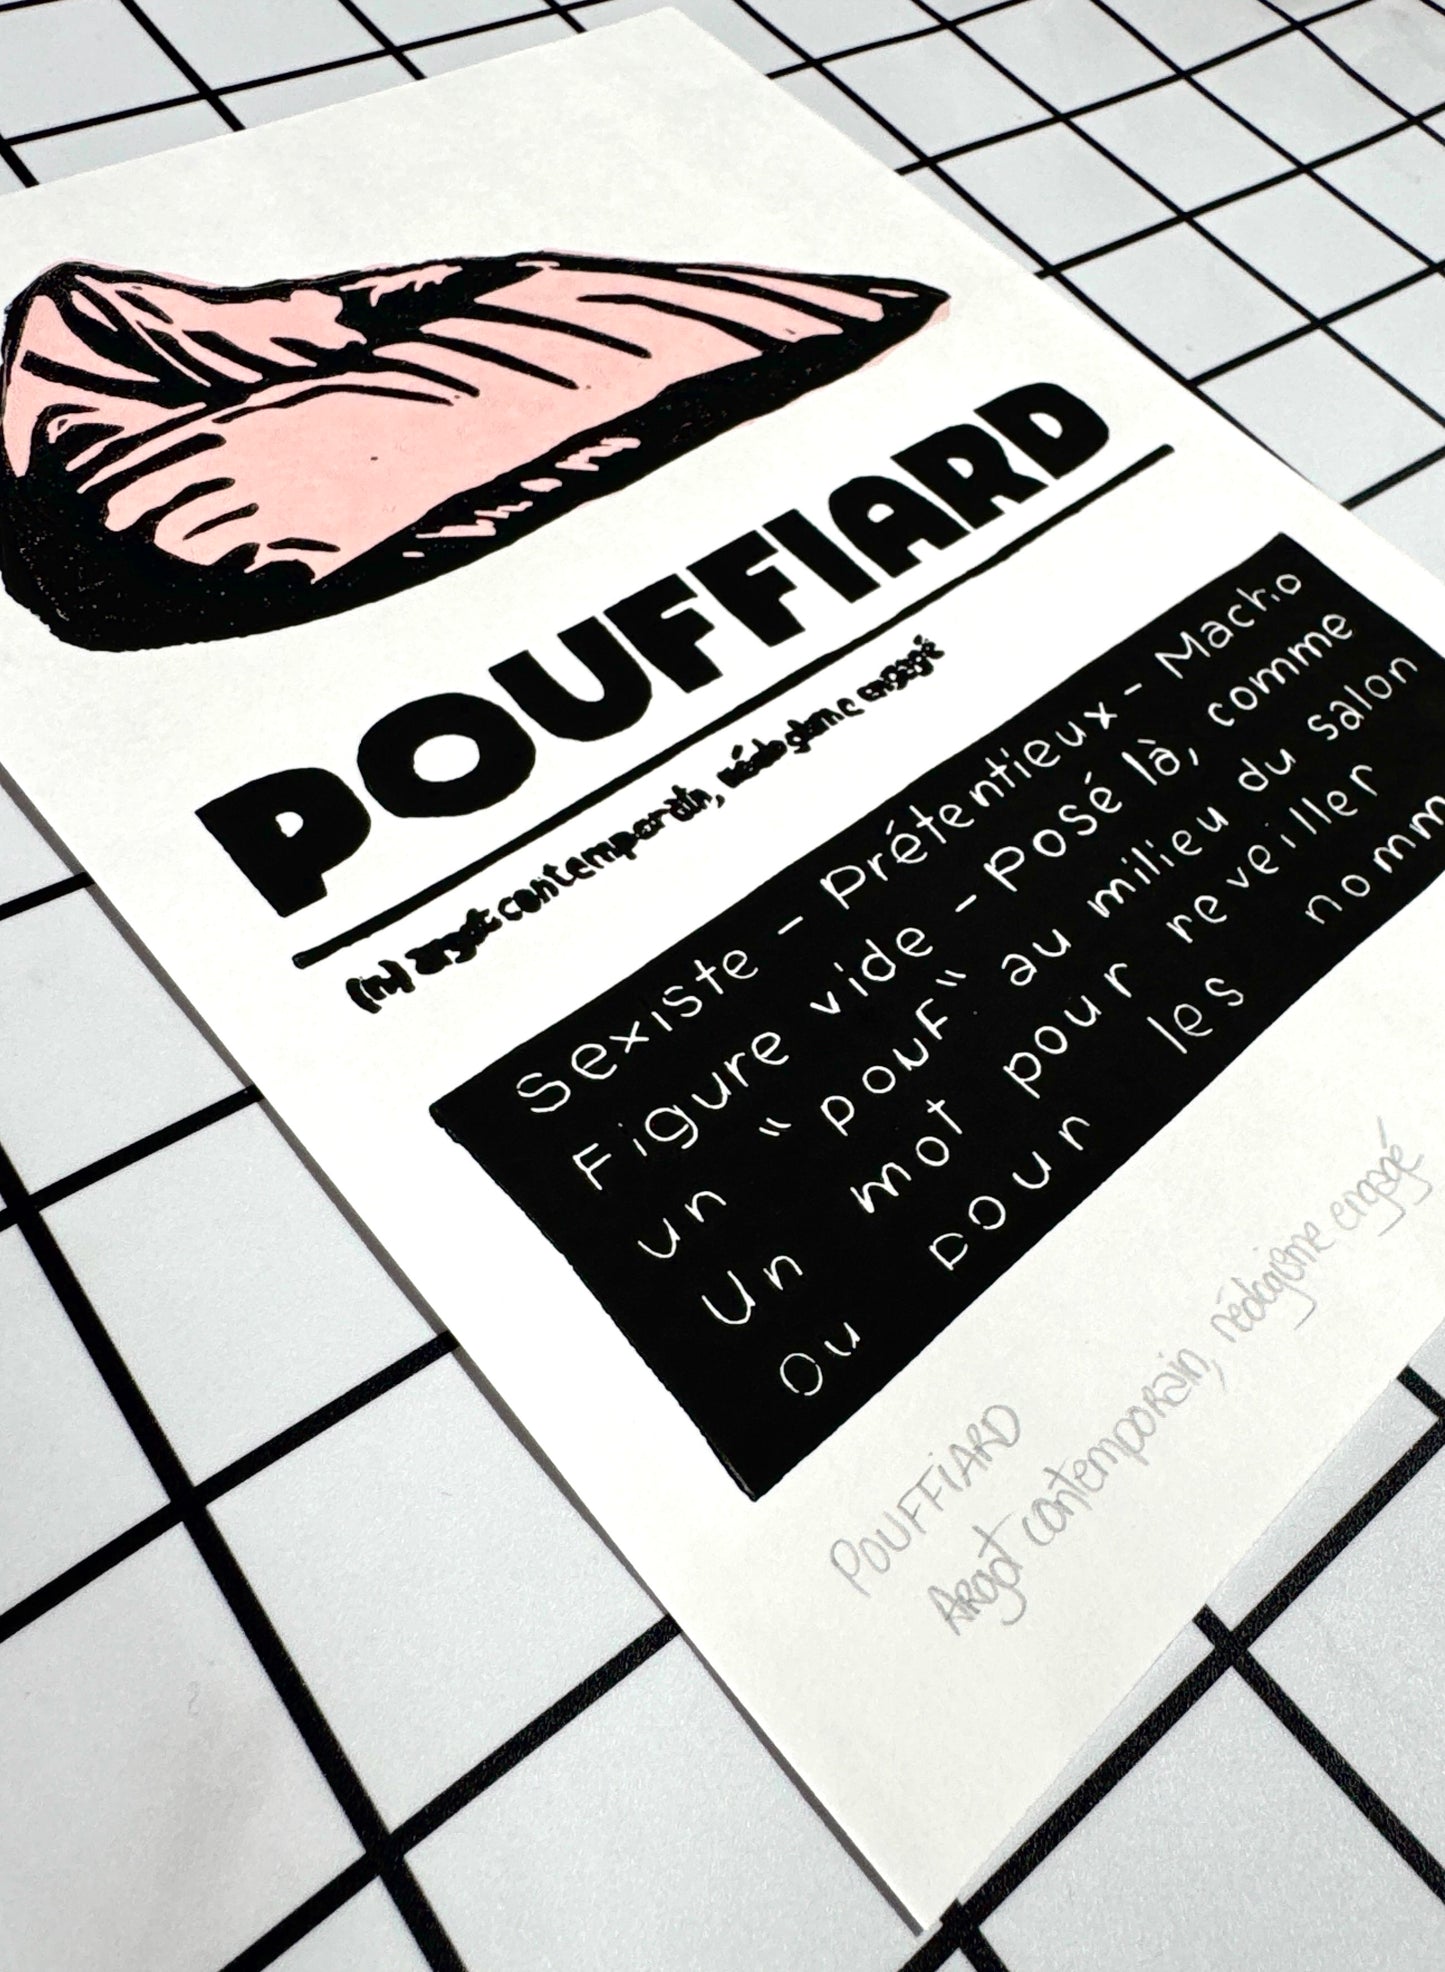 POUFFIARD
(n) argot contemporain, néologisme engagé
Sexiste - Prétentieux - Macho
Figure vide - Posé là, comme
un "pouf" au milieu du salon
Un mot pour reveiller
ou pour les nomm
POUFFIARD
Argot contemporain, néologisme engagé